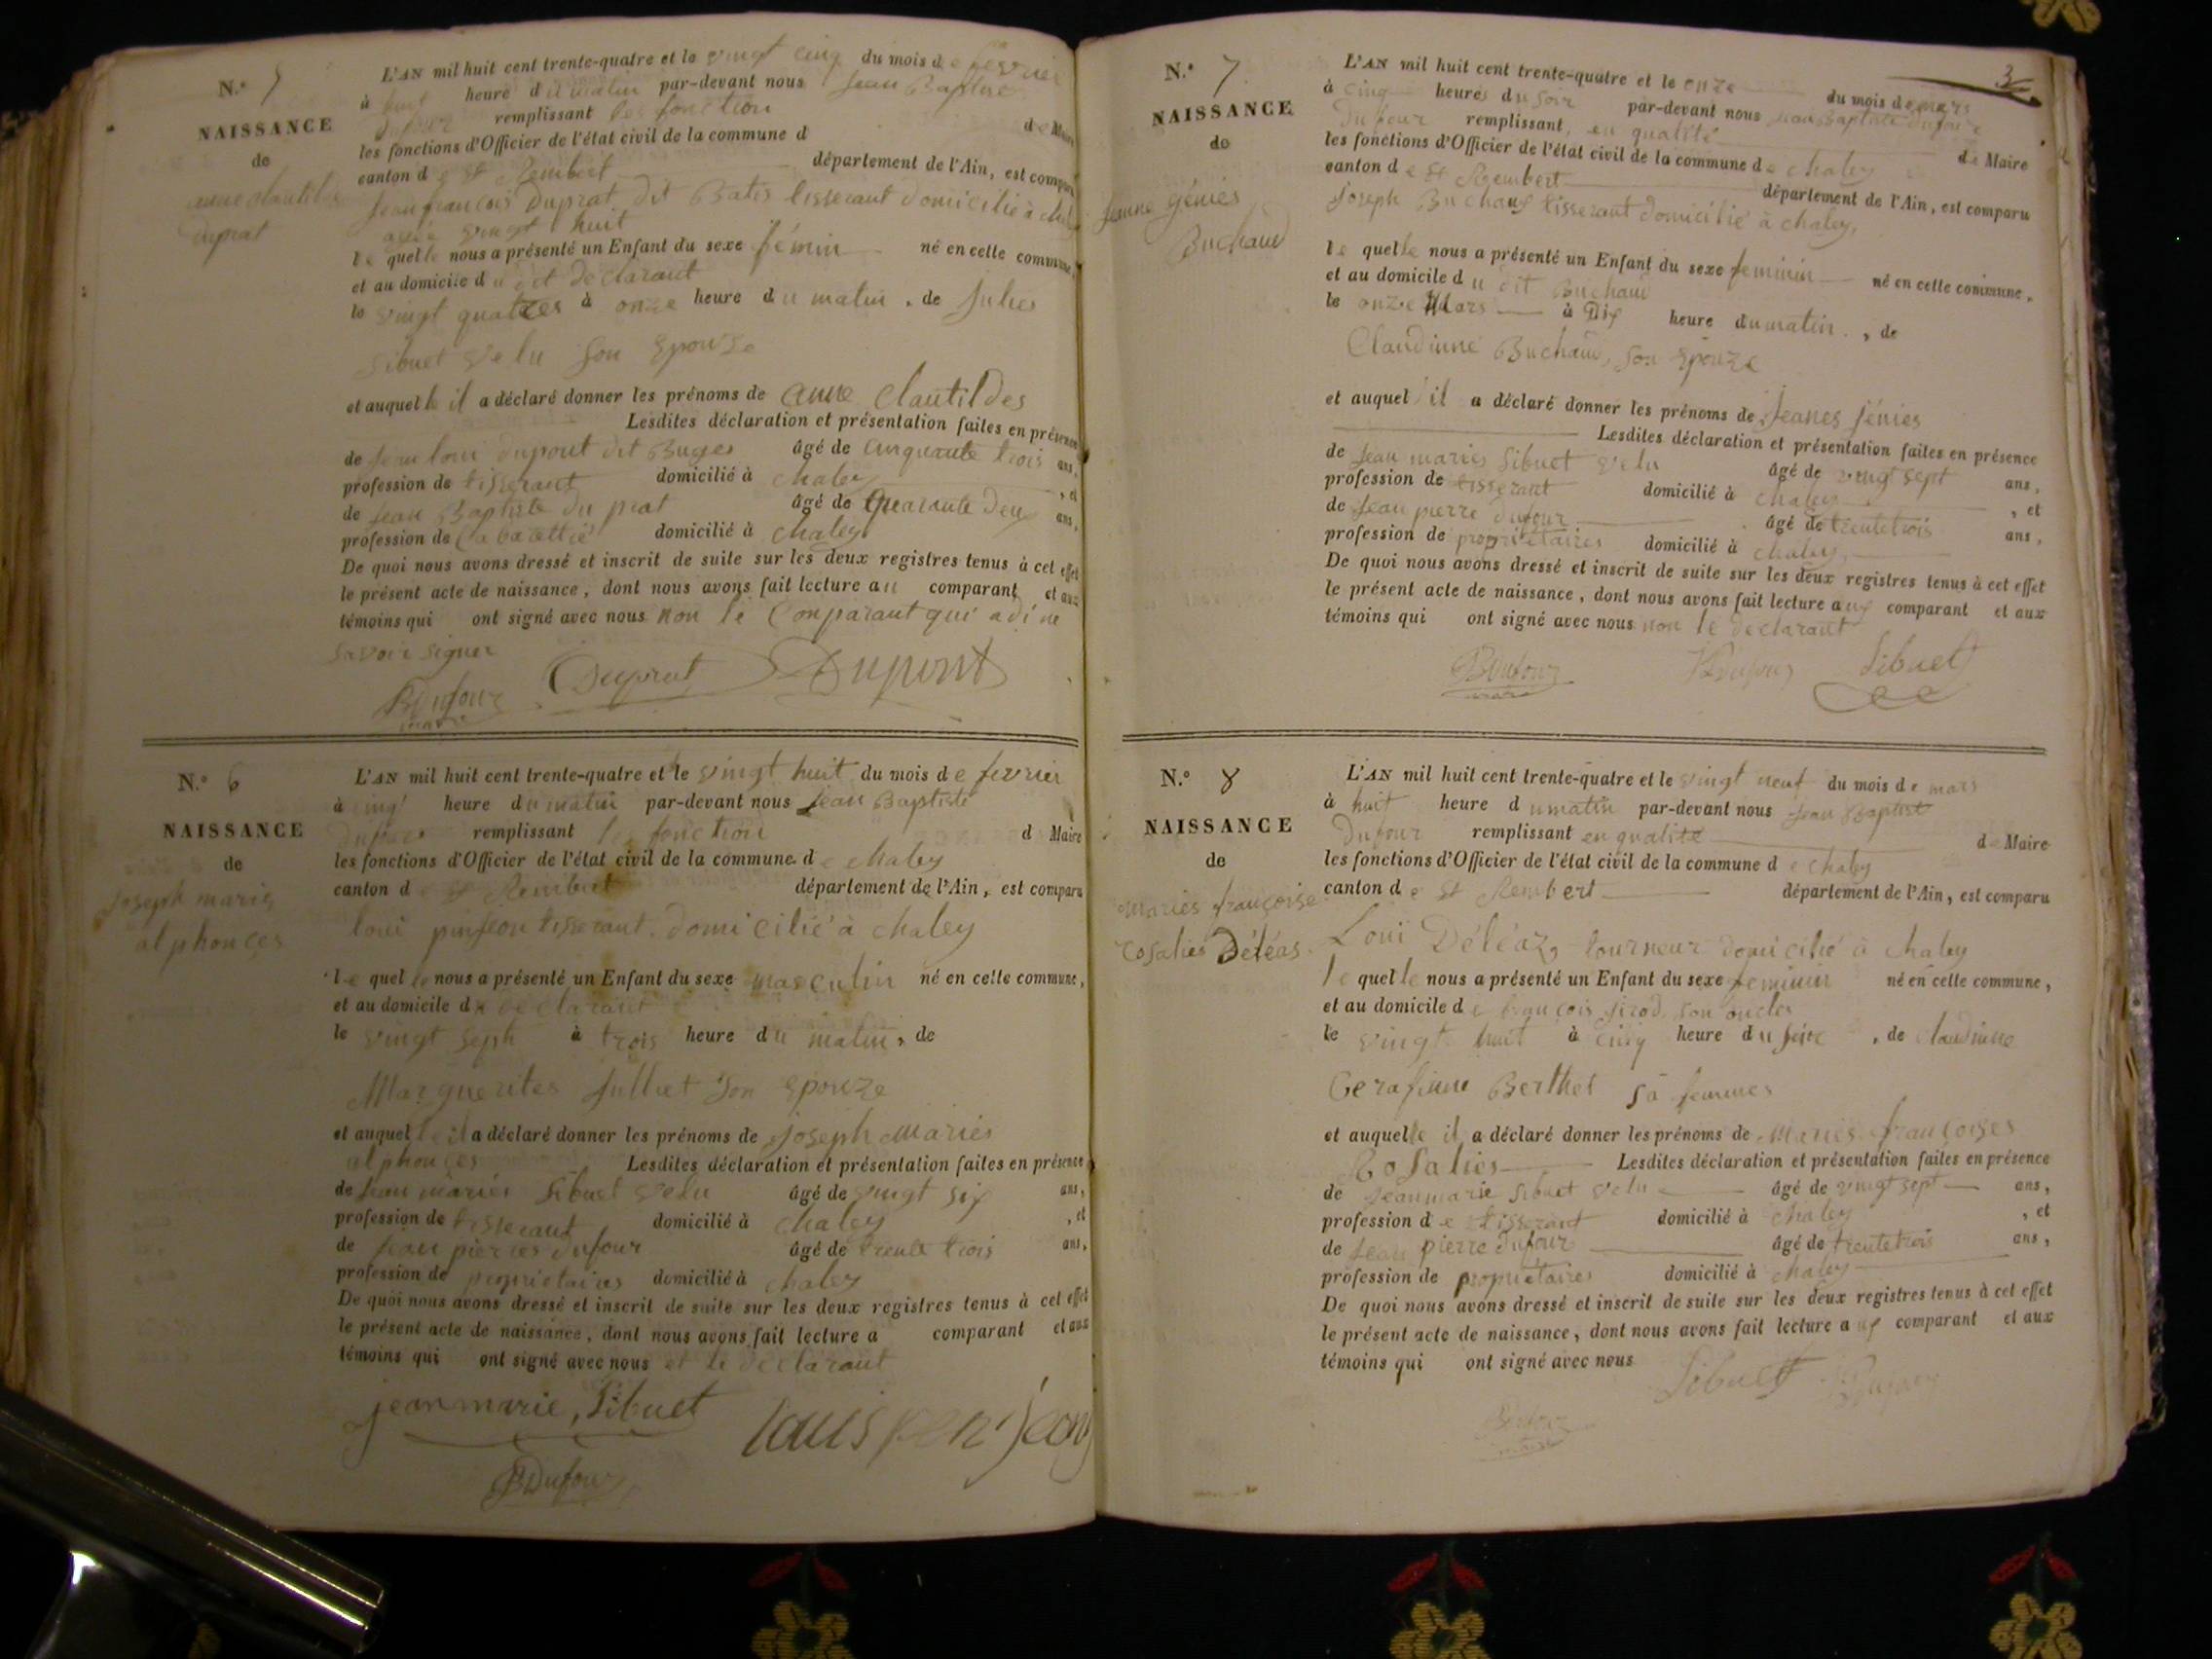 N.° 5
NAISSANCE
de
anne clautildes
duprat
L'AN mil huit cent trente-quatre et le vingt cinq du mois de fevrier
à huit heure du matin par-devant nous Jean Baptiste
Dufour remplissant les fonction de Maire
les fonctions d'Officier de l'état civil de la commune d
canton de st Rembert département de l'Ain, est comparu
Jean francois Duprat dit Batis tisserant domicilie à
agée vingt huit
le quelle nous a présenté un Enfant du sexe fémin né en celle commune,
et au domicile du dit déclarant
le vingt quatres à onze heure du matin, de Julies
Sibuet velu son epouze
et auquelle il a déclaré donner les prénoms de anne Clautildes
Lesdites déclaration et présentation faites en présence
de Jean loui dupont dit Buges âgé de cinquante trois ans,
profession de tisserant domicilié à chaley, et
de Jean Baptiste du prat âgé de Quarante deux ans,
profession de Cabarettié domicilié à chaley
De quoi nous avons dressé et inscrit de suite sur les deux registres tenus à cet effet
le présent acte de naissance, dont nous avons fait lecture au comparant et aux
témoins qui ont signé avec nous non le Conparant qui a di ne
savoir signer
BDufour Duprat Dupont
maire
N.° 6
NAISSANCE
de
Joseph maries
alphonces
L'AN mil huit cent trente-quatre et le vingt huit du mois de fevrier
à heure du matin par-devant nous Jean Baptiste
Dufour remplissant les fonction d Maire
les fonctions d'Officier de l'état civil de la commune de chaley
canton de st Rembert département de l'Ain, est comparu
loui pinjeon tisserant domicilié à chaley
le quel le nous a présenté un Enfant du sexe masculin né en celle commune,
et au domicile du déclarant
le vingt seph à trois heure du matin, de
Marguerites Julliet son epouze
et auquel le il a déclaré donner les prénoms de joseph Maries
alphonces Lesdites déclaration et présentation faites en présence
de Jean maries Sibuet velu âgé de vingt six ans,
profession de tisserant domicilié à chaley, et
de Jean pierres dufour âgé de trente trois ans,
profession de propriétaires domicilié à chaley
De quoi nous avons dressé et inscrit de suite sur les deux registres tenus à cet effet
le présent acte de naissance, dont nous avons fait lecture a comparant et aux
témoins qui ont signé avec nous et le déclarant
jean marie, Sibuet louis penjeon
BDufour
3
N.° 7
NAISSANCE
de
Jeanne génies
Buchaud
L'AN mil huit cent trente-quatre et le onze du mois de mars
à cinq heures du soir par-devant nous Jean Baptiste dufour
Dufour remplissant, en qualité de Maire
les fonctions d'Officier de l'état civil de la commune de chaley
canton de st Rembert département de l'Ain, est comparu
Joseph Buchaud tisserant domicilié à chaley,
le quelle nous a présenté un Enfant du sexe feminin né en celle commune,
et au domicile du dit Buchaud
le onze Mars à Dix heure du matin, de
Claudinne Buchaud, son épouze
et auquel il a déclaré donner les prénoms de Jeanes Jénies
Lesdites déclaration et présentation faites en présence
de Jean maries Sibuet velu âgé de vingt sept ans,
profession de tisserant domicilié à chaley, et
de Jean pierre dufour âgé de trente trois ans,
profession de propriétaires domicilié à chaley,
De quoi nous avons dressé et inscrit de suite sur les deux registres tenus à cet effet
le présent acte de naissance, dont nous avons fait lecture aux comparant et aux
témoins qui ont signé avec nous non le déclarant
BDufour Dufour Sibuet
maire
N.° 8
NAISSANCE
de
Maries françoise
rosalies Déléas
L'AN mil huit cent trente-quatre et le vingt neuf du mois de mars
à huit heure du matin par-devant nous Jean Baptist
Dufour remplissant en qualité de Maire
les fonctions d'Officier de l'état civil de la commune de chaley
canton de st Rembert département de l'Ain, est comparu
Loui Déléaz, tourneur domicilié à chaley
le quelle nous a présenté un Enfant du sexe feminin né en celle commune,
et au domicile de françois sirod, son oncles
le vingt huit à cinq heure du soire, de Claudinne
Cerafinne Berthet sa femmes
et auquelle il a déclaré donner les prénoms de Maries françoises
Rosalies Lesdites déclaration et présentation faites en présence
de Jean marie Sibuet velu âgé de vingt sept ans,
profession de tisserant domicilié à chaley, et
de Jean pierre dufour âgé de trente trois ans,
profession de propriétaires domicilié à chaley
De quoi nous avons dressé et inscrit de suite sur les deux registres tenus à cet effet
le présent acte de naissance, dont nous avons fait lecture aux comparant et aux
témoins qui ont signé avec nous
Sibuet Dufour
BDufour
maire